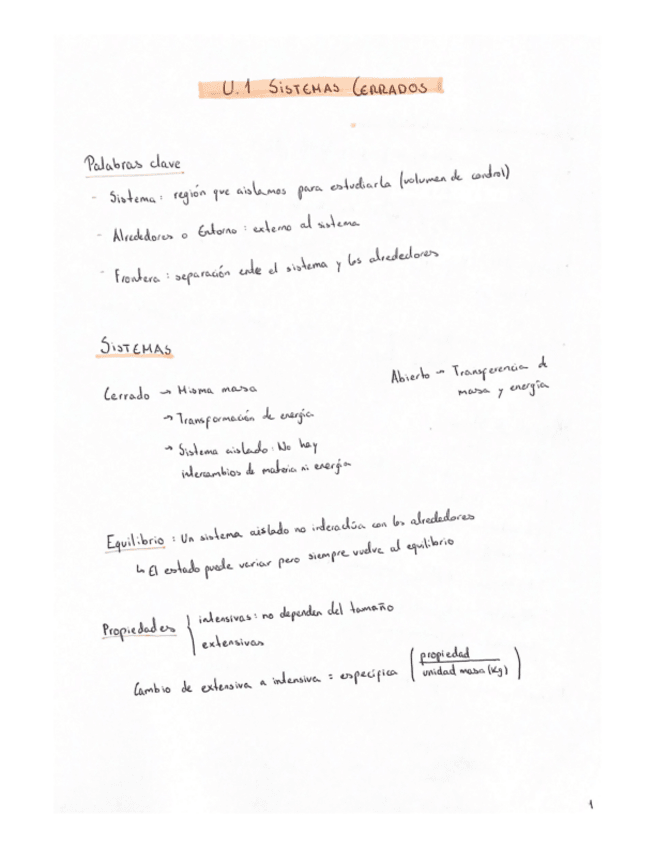 U.1 SISTEMAS CERRADOS
Palabras clave
- Sistema: región que aislamos para estudiarla (volumen de control)
- Alrededores o Entorno: externo al sistema
- Frontera: separación entre el sistema y los alrededores
SISTEMAS
Cerrado → Misma masa
→ Transformación de energía
→ Sistema aislado: No hay
intercambios de materia ni energía
Abierto → Transferencia de
masa y energía
Equilibrio: Un sistema aislado no interactúa con los alrededores
↳ El estado puede variar pero siempre vuelve al equilibrio
Propiedades { intensivas: no dependen del tamaño
extensivas
Cambio de extensiva a intensiva = específica (propiedad
unidad masa (Kg))
1